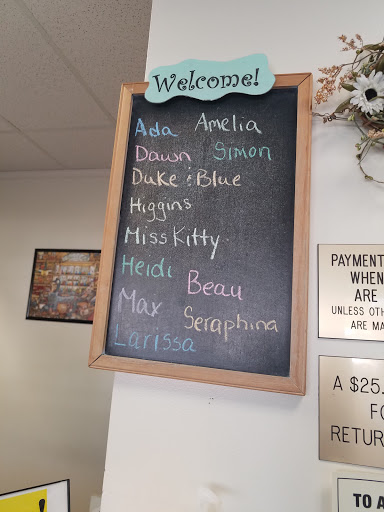 Welcome!
Ada Amelia
Dawn Simon
Duke & Blue
Higgins
Miss Kitty
Heidi Beau
Max Seraphina
Larissa
PAYMENT
WHEN
ARE
UNLESS OTH
ARE MA
A $25.
FO
RETUR
TO A